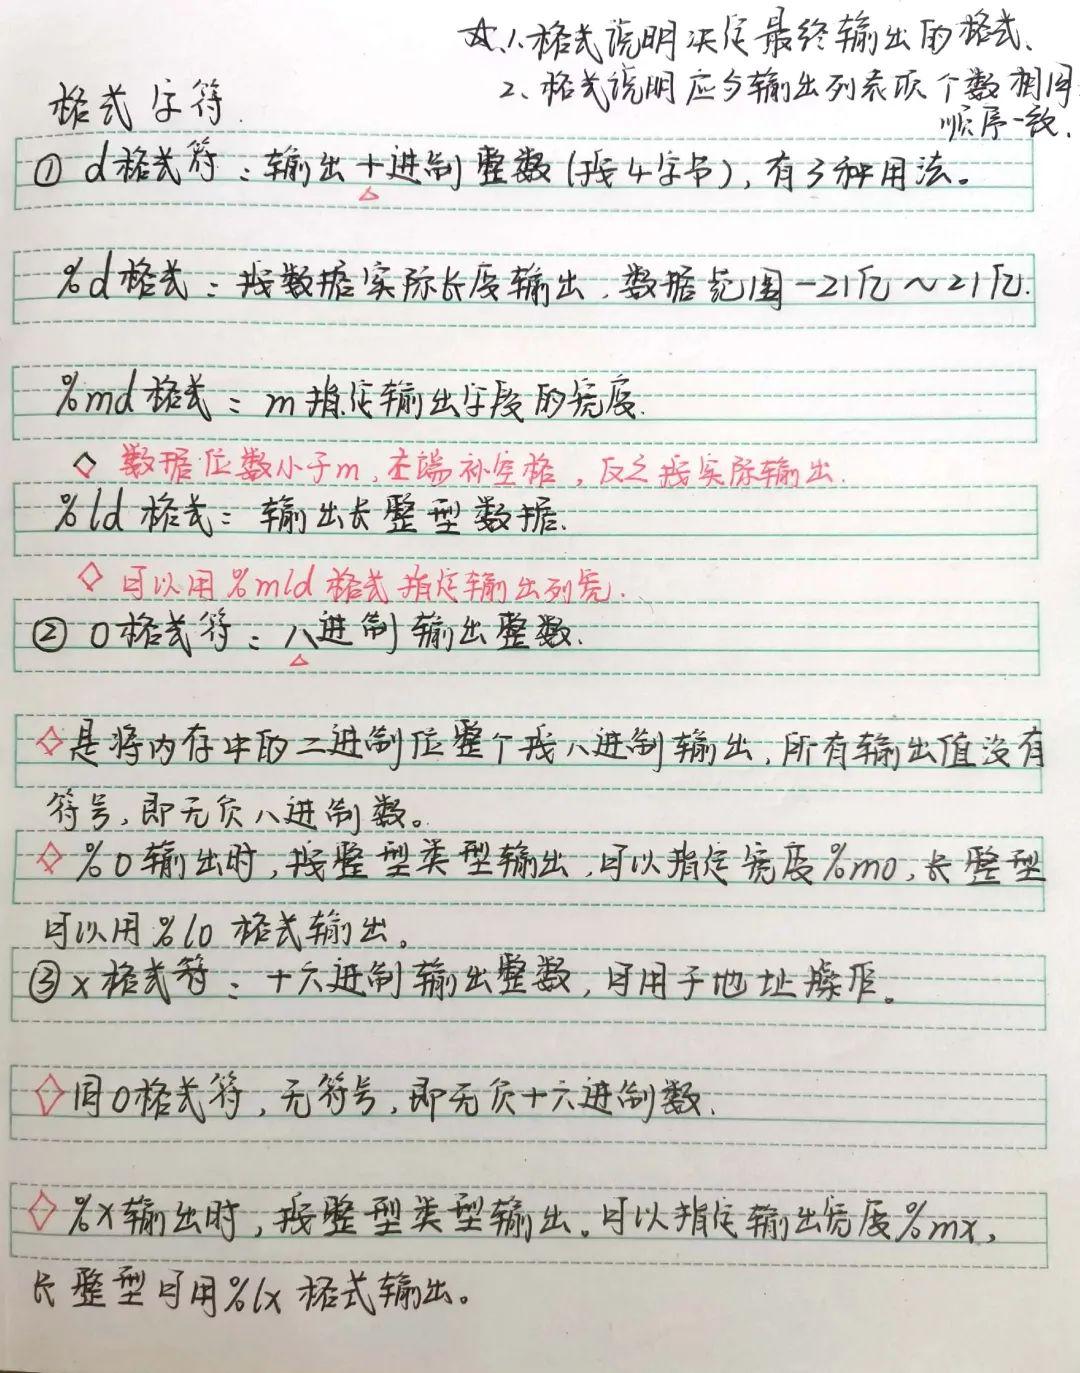 ☆1、格式说明决定最终输出的格式、
2、格式说明应与输出列表项个数相同
顺序一致.
格式字符.
① d格式符：输出十进制整数(按4字节)，有3种用法。
%d格式：按数据实际长度输出.数据范围-21亿～21亿.
%md格式：m指定输出字段的宽度.
◇ 数据位数小于m,左端补空格，反之按实际输出.
%ld格式：输出长整型数据.
◇ 可以用%mld格式指定输出列宽.
② O格式符：八进制输出整数.
◇是将内存中的二进制位整个按八进制输出,所有输出值没有
符号,即无负八进制数。
◇ %O输出时,按整型类型输出,可以指定宽度%mo,长整型
可以用%lo格式输出。
③ x格式符：十六进制输出整数,可用于地址操作。
◇同O格式符,无符号,即无负十六进制数.
◇%X输出时,按整型类型输出。可以指定输出宽度%mx,
长整型可用%lx格式输出。